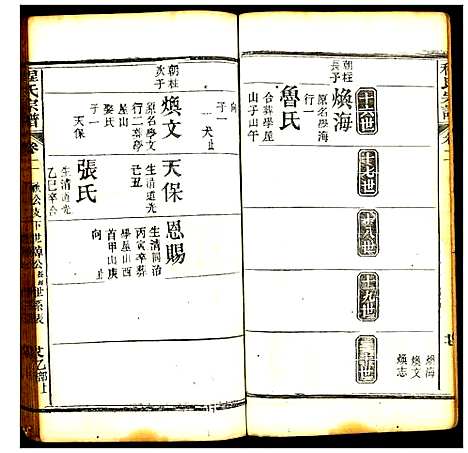 十六世
十七世
十八世
十九世
二十世
朝柱
長子
煥海
原名學海
行一
魯氏
合葬學屋
山子山午
向
一犬止
子一
朝柱
次子
煥文
原名學文
行二葬學
屋山
娶氏
子一
天保
天保
生清道光
己丑
張氏
生清道光
乙巳卒合
恩賜
生清同治
丙寅卒葬
學屋山西
首甲山庚
向止
煥海
煥文
煥志
程氏宗譜
卷二